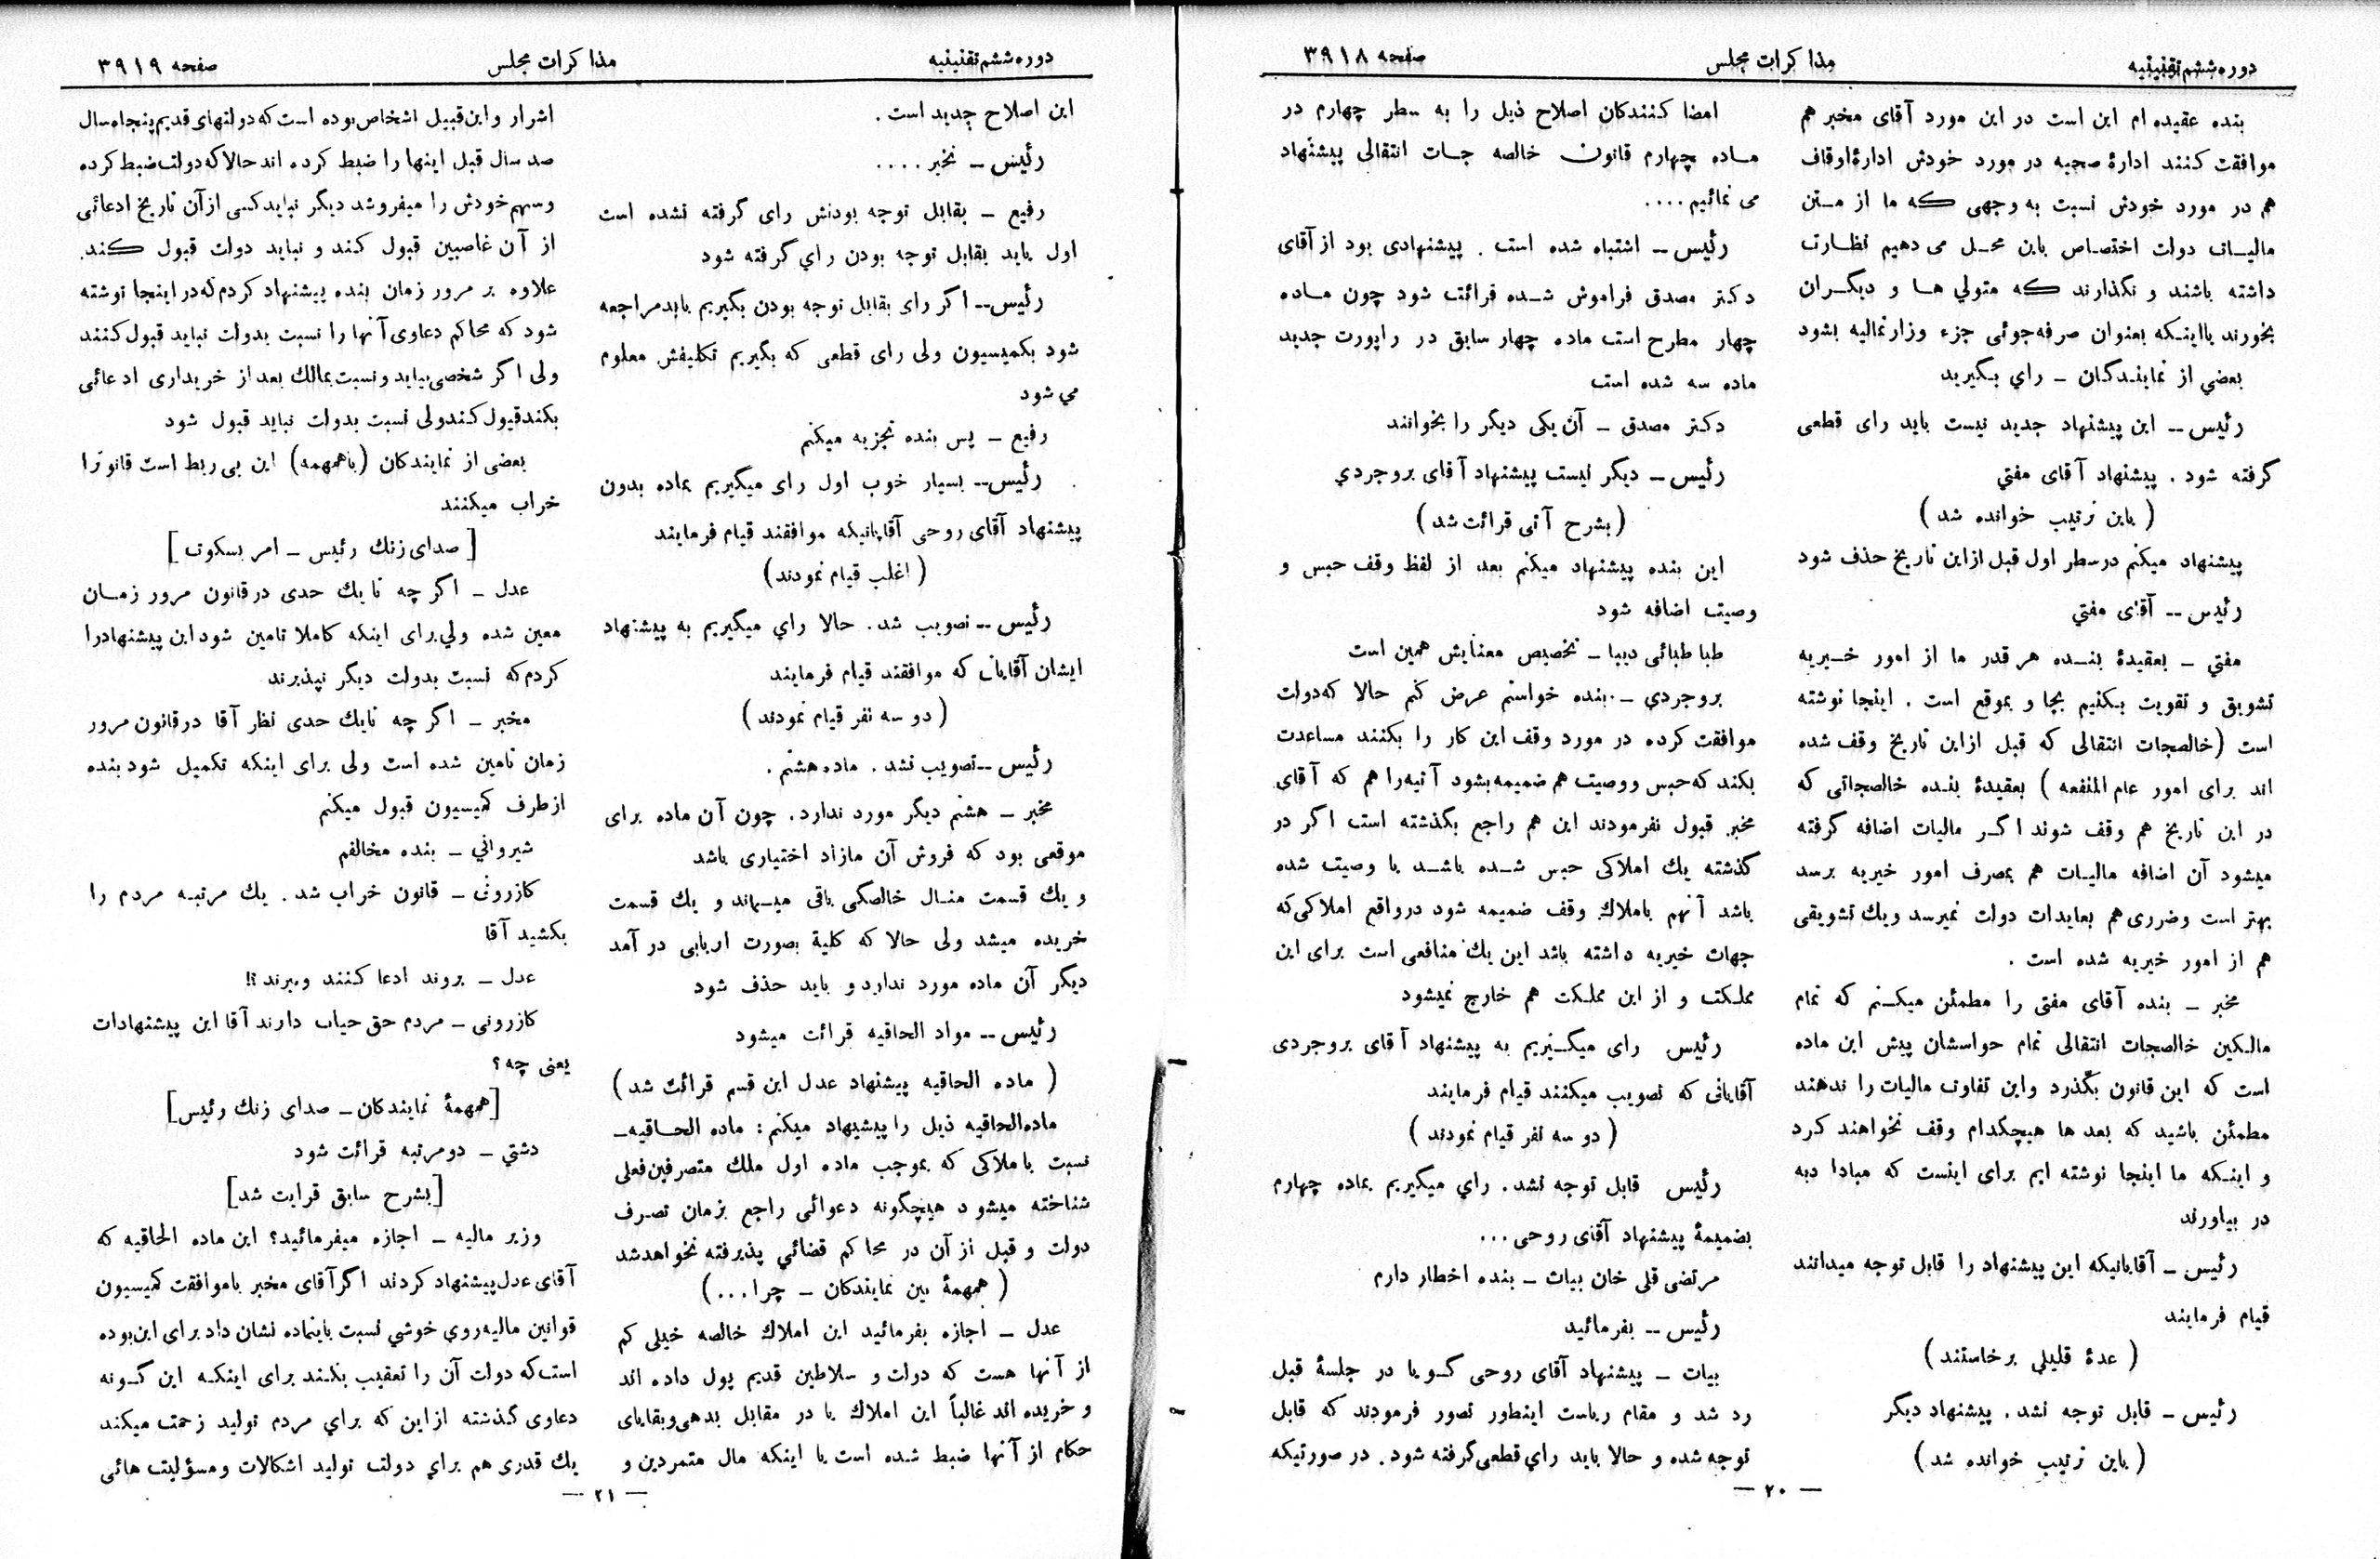 دوره ششم تقنینیه
مذاکرات مجلس
صفحه ۳۹۱۸
بنده عقیده ام این است در این مورد آقای مخبر هم
موافقت کنند ادارهٔ صحیه در مورد خودش ادارهٔ اوقاف
هم در مورد خودش نسبت به وجهی که ما از متن
مالیات دولت اختصاص باین محل می دهیم نظارت
داشته باشند و نگذارند که متولي ها و دیگران
بخورند یا اینکه بعنوان صرفه جوئی جزء وزارتمالیه بشود
بعضي از نمایندگان ــ راي بگیرید
رئیس ــ این پیشنهاد جدید نیست باید رای قطعی
گرفته شود . پیشنهاد آقای مفتي
( باین ترتیب خوانده شد )
پیشنهاد میکنم در سطر اول قبل از این تاریخ حذف شود
رئیس ــ آقای مفتي
مفتي ــ بعقیدهٔ بنده هر قدر ما از امور خیریه
تشویق و تقویت بکنیم بجا و بموقع است . اینجا نوشته
است (خالصجات انتقالی که قبل از این تاریخ وقف شده
اند برای امور عام المنفعه ) بعقیدهٔ بنده خالصجاتی که
در این تاریخ هم وقف شوند اگر مالیات اضافه گرفته
میشود آن اضافه مالیات هم بمصرف امور خیریه برسد
بهتر است وضرری هم بعایدات دولت نمیرسد ویك تشویقی
هم از امور خیریه شده است .
مخبر ــ بنده آقای مفتی را مطمئن میکنم که تمام
مالکین خالصجات انتقالی تمام حواسشان پیش این ماده
است که این قانون بگذرد واین تفاوت مالیات را ندهند
مطمئن باشید که بعد ها هیچکدام وقف نخواهند کرد
و اینکه ما اینجا نوشته ایم برای اینست که مبادا دبه
در بیاورند
رئیس ــ آقایانیکه این پیشنهاد را قابل توجه میدانند
قیام فرمایند
( عدهٔ قلیلی برخاستند )
رئیس ــ قابل توجه نشد . پیشنهاد دیگر
( باین ترتیب خوانده شد )
امضا کنندگان اصلاح ذیل را به سطر چهارم در
ماده چهارم قانون خالصه جات انتقالی پیشنهاد
می نمائیم ....
رئیس ــ اشتباه شده است . پیشنهادی بود از آقای
دکتر مصدق فراموش شده قرائت شود چون ماده
چهار مطرح است ماده چهار سابق در راپورت جدید
ماده سه شده است
دکتر مصدق ــ آن یکی دیگر را بخوانند
رئیس ــ دیگر نیست پیشنهاد آقای بروجردي
( بشرح آتی قرائت شد )
این بنده پیشنهاد میکنم بعد از لفظ وقف حبس و
وصیت اضافه شود
طباطبائی دیبا ــ تخصیص معنایش همین است
بروجردي ــ بنده خواستم عرض کنم حالا که دولت
موافقت کرده در مورد وقف این کار را بکنند مساعدت
بکند که حبس ووصیت هم ضمیمه بشود آتیه را هم که آقای
مخبر قبول نفرمودند این هم راجع بگذشته است اگر در
گذشته یك املاکی حبس شده باشد یا وصیت شده
باشد آنهم باملاك وقف ضمیمه شود در واقع املاکی که
جهات خیریه داشته باشد این یك منافعی است برای این
مملکت و از این مملکت هم خارج نمیشود
رئیس رای میگیریم به پیشنهاد آقای بروجردی
آقایانی که تصویب میکنند قیام فرمایند
( دو سه نفر قیام نمودند )
رئیس قابل توجه نشد . راي میگیریم بماده چهارم
بضمیمهٔ پیشنهاد آقای روحی ...
مرتضی قلی خان بیات ــ بنده اخطار دارم
رئیس ــ بفرمائید
بیات ــ پیشنهاد آقای روحی گویا در جلسهٔ قبل
رد شد و مقام ریاست اینطور تصور فرمودند که قابل
توجه شده و حالا باید راي قطعی گرفته شود . در صورتیکه
— ۲۰ —
دوره ششم تقنینیه
مذاکرات مجلس
صفحه ۳۹۱۹
این اصلاح جدید است .
رئیس ــ نخیر ....
رفیع ــ بقابل توجه بودنش رای گرفته نشده است
اول باید بقابل توجه بودن راي گرفته شود
رئیس ــ اگر رای بقابل توجه بودن بگیریم باید مراجعه
شود بکمیسیون ولی رای قطعی که بگیریم تکلیفش معلوم
مي شود
رفیع ــ پس بنده تجزیه میکنم
رئیس ــ بسیار خوب اول رای میگیریم بماده بدون
پیشنهاد آقای روحی آقایانیکه موافقند قیام فرمایند
( اغلب قیام نمودند )
رئیس ــ تصویب شد . حالا راي میگیریم به پیشنهاد
ایشان آقایان که موافقند قیام فرمایند
( دو سه نفر قیام نمودند )
رئیس ــ تصویب نشد . ماده هشتم .
مخبر ــ هشتم دیگر مورد ندارد . چون آن ماده برای
موقعی بود که فروش آن مازاد اختیاری باشد
و یك قسمت منال خالصگی باقی میماند و یك قسمت
خریده میشد ولی حالا که کلیة بصورت اربابی در آمد
دیگر آن ماده مورد ندارد و باید حذف شود
رئیس ــ مواد الحاقیه قرائت میشود
( ماده الحاقیه پیشنهاد عدل این قسم قرائت شد )
ماده الحاقیه ذیل را پیشنهاد میکنم : ماده الحاقیه ــ
نسبت باملاکی که بموجب ماده اول ملك متصرفین فعلی
شناخته میشود هیچگونه دعوائی راجع بزمان تصرف
دولت و قبل از آن در محاکم قضائي پذیرفته نخواهد شد
( همهمهٔ بین نمایندکان ــ چرا ... )
عدل ــ اجازه بفرمائید این املاك خالصه خیلی کم
از آنها هست که دولت و سلاطین قدیم پول داده اند
و خریده اند غالباً این املاك یا در مقابل بدهی وبقایای
حکام از آنها ضبط شده است یا اینکه مال متمردین و
اشرار واین قبیل اشخاص بوده است که دولتهای قدیم پنجاه سال
صد سال قبل اینها را ضبط کرده اند حالا که دولت ضبط کرده
وسهم خودش را میفروشد دیگر نباید کسی از آن تاریخ ادعائی
از آن غاصبین قبول کند و نباید دولت قبول کند.
علاوه بر مرور زمان بنده پیشنهاد کردم که در اینجا نوشته
شود که محاکم دعاوی آنها را نسبت بدولت نباید قبول کنند
ولی اگر شخصی بیاید ونسبت بمالك بعد از خریداری ادعائی
بکند قبول کند ولی نسبت بدولت نباید قبول شود
بعضی از نمایندکان (باهمهمه) این بی ربط است قانونرا
خراب میکنند
[ صدای زنك رئیس ــ امر بسکوت ]
عدل ــ اگر چه تا یك حدی در قانون مرور زمان
معین شده ولي برای اینکه کاملا تامین شود این پیشنهاد را
کردم که نسبت بدولت دیگر نپذیرند
مخبر ــ اگر چه تا یك حدی نظر آقا در قانون مرور
زمان تامین شده است ولی برای اینکه تکمیل شود بنده
از طرف کمیسیون قبول میکنم
شیرواني ــ بنده مخالفم
کازرونی ــ قانون خراب شد . یك مرتبه مردم را
بکشید آقا
عدل ــ بروند ادعا کنند ومیرند؟!
کازرونی ــ مردم حق حیات دارند آقا این پیشنهادات
یعنی چه ؟
[همهمهٔ نمایندکان ــ صدای زنك رئیس]
دشتي ــ دو مرتبه قرائت شود
[بشرح سابق قرایت شد]
وزیر مالیه ــ اجازه میفرمائید؟ این ماده الحاقیه که
آقای عدل پیشنهاد کردند اگر آقای مخبر باموافقت کمیسیون
قوانین مالیه روي خوشي نسبت باینماده نشان داد برای این بوده
است که دولت آن را تعقیب بکند برای اینکه این گونه
دعاوی گذشته از این که براي مردم تولید زحمت میکند
یك قدری هم براي دولت تولید اشکالات ومسؤلیت هائی
— ۲۱ —